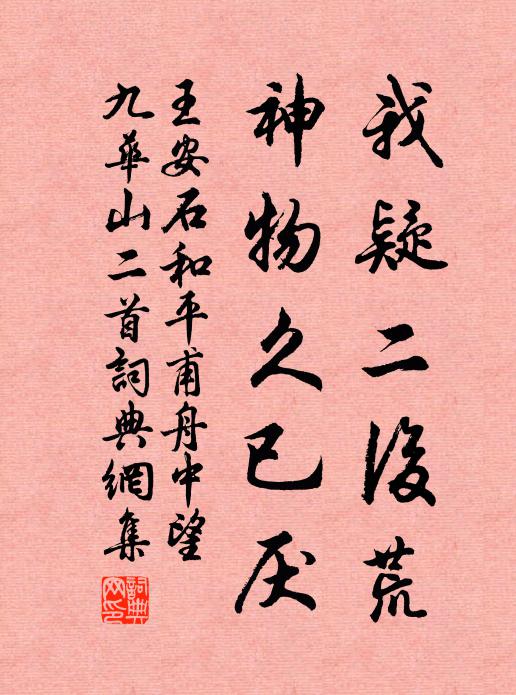 我疑二後荒
神物久已厌
王安石和平甫舟中望
九華山二首詞典網集
詞典网印